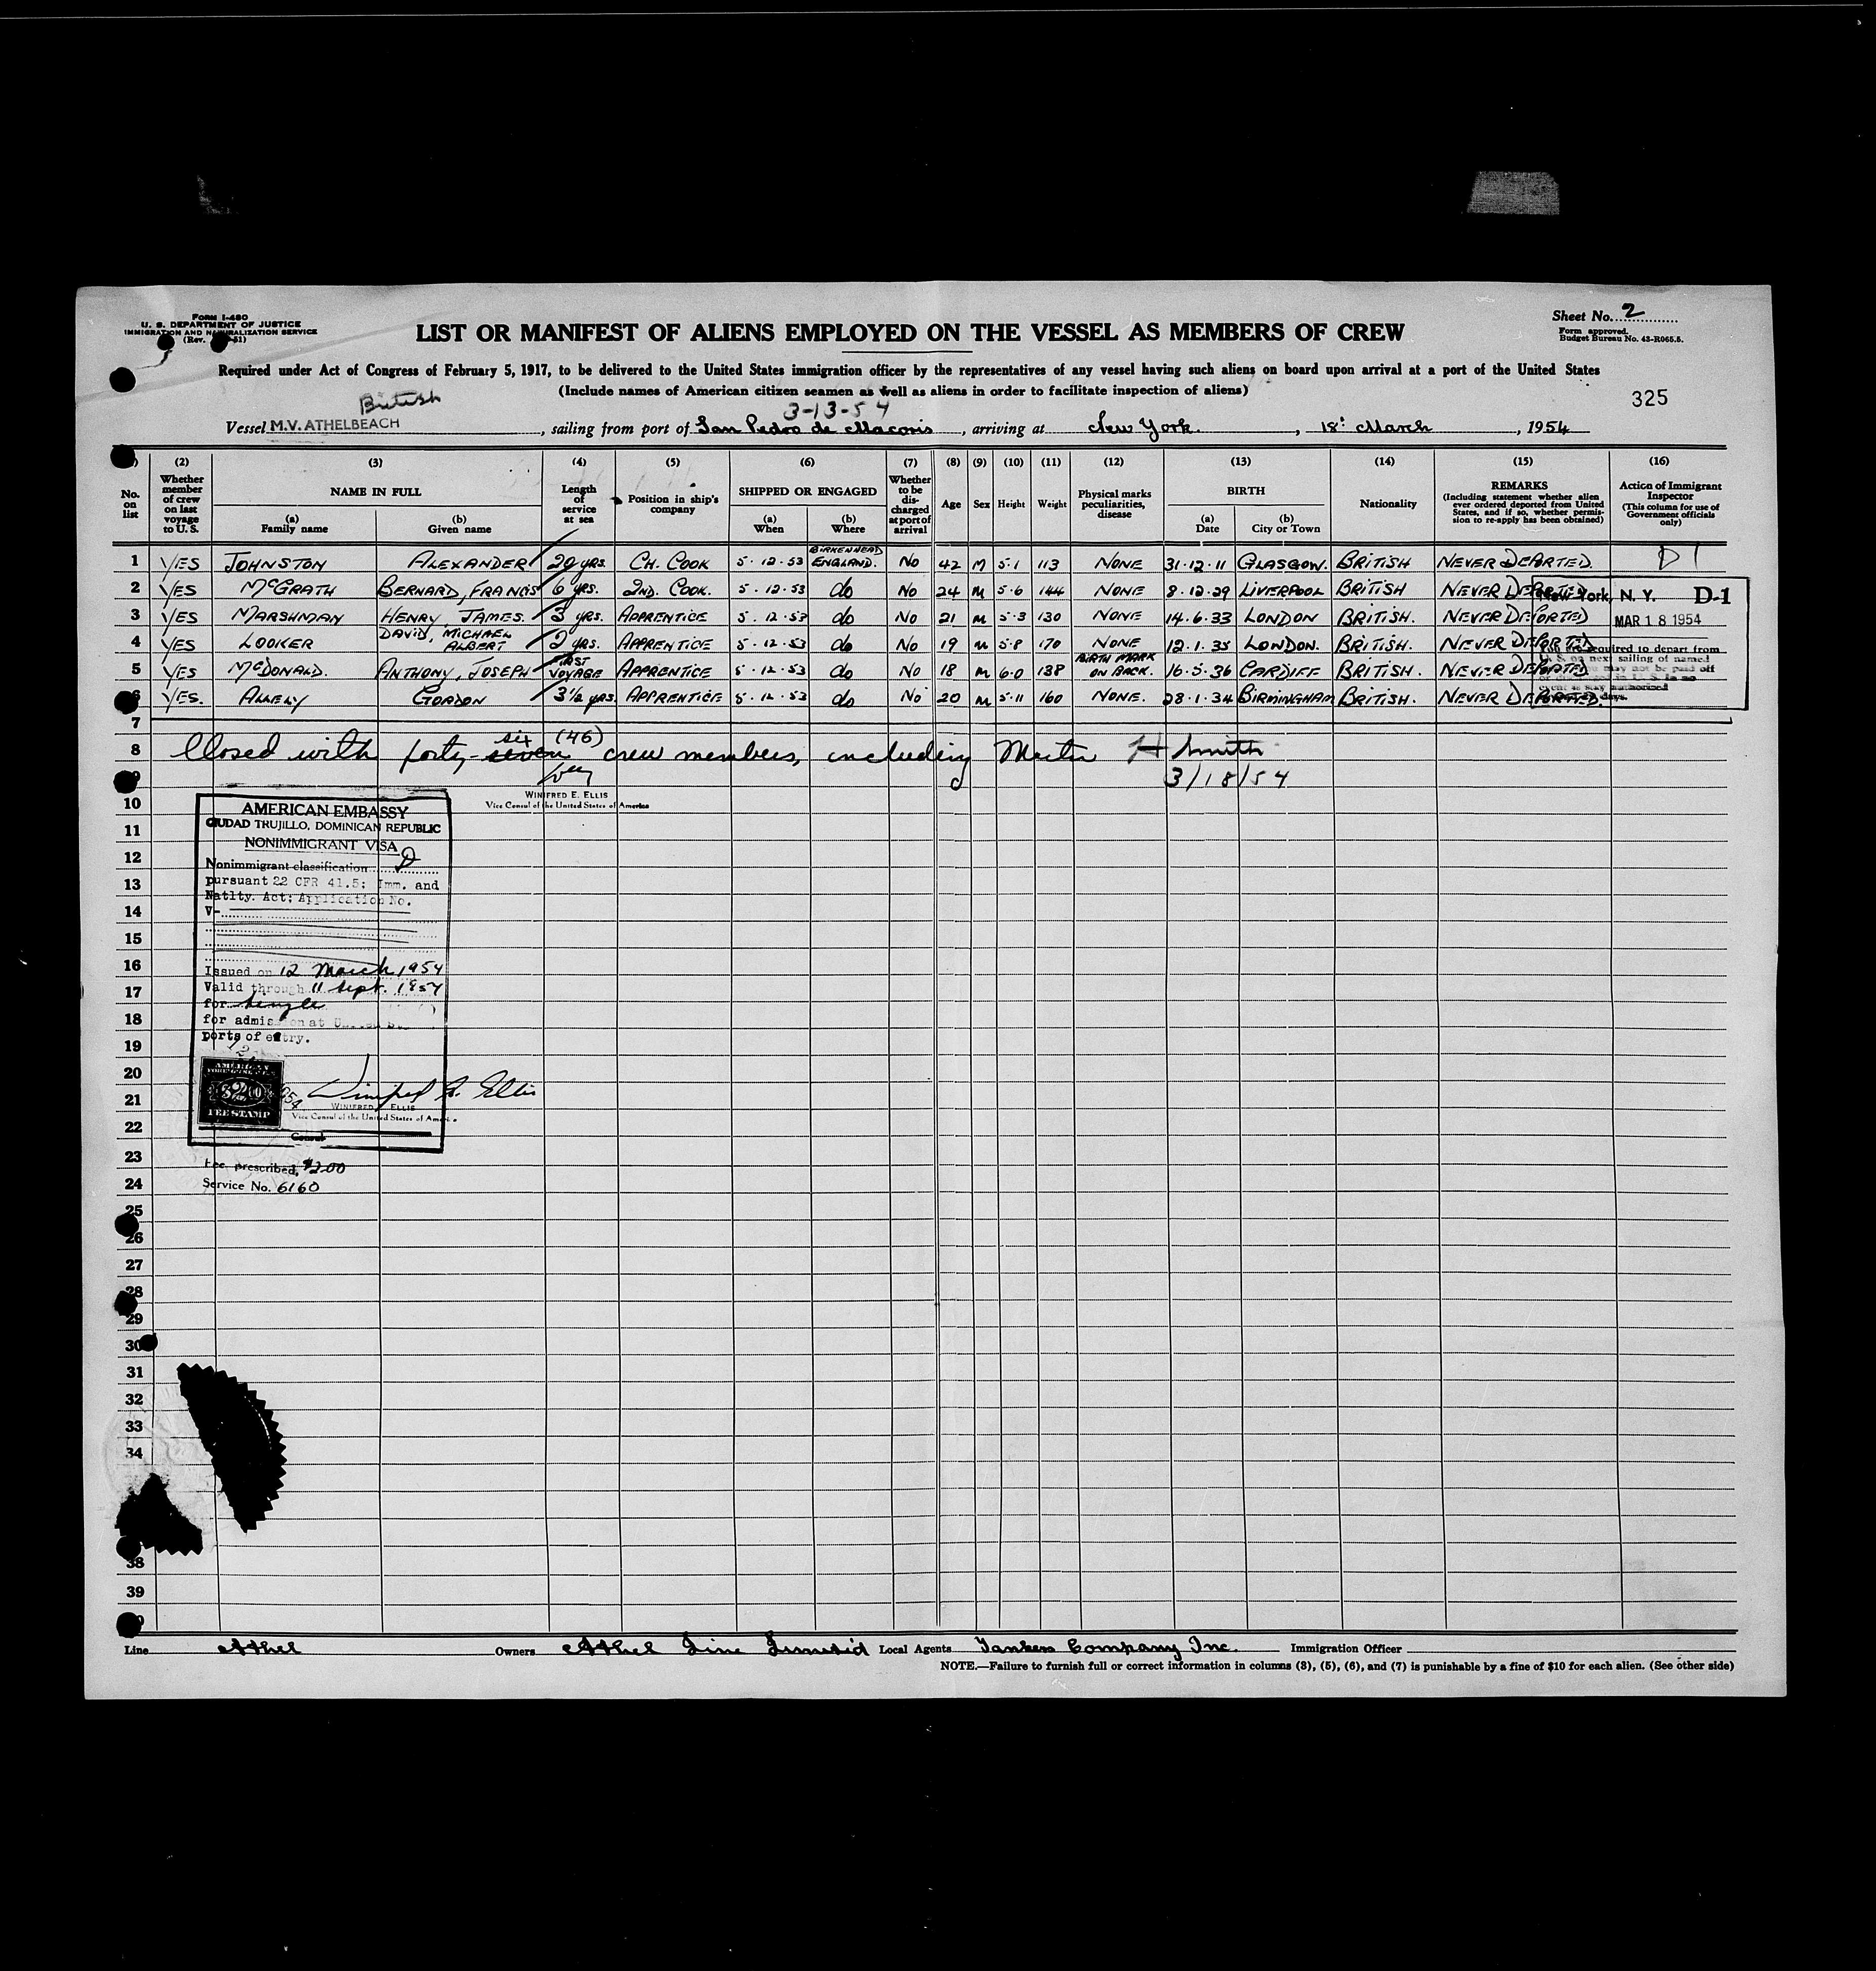 FORM I-480
U. S. DEPARTMENT OF JUSTICE
IMMIGRATION AND NATURALIZATION SERVICE
(Rev.
Sheet No. 2
Form approved.
Budget Bureau No. 43-R065.5.
LIST OR MANIFEST OF ALIENS EMPLOYED ON THE VESSEL AS MEMBERS OF CREW
Required under Act of Congress of February 5, 1917, to be delivered to the United States immigration officer by the representatives of any vessel having such aliens on board upon arrival at a port of the United States
(Include names of American citizen seamen as well as aliens in order to facilitate inspection of aliens)
325
British
3-13-54
Vessel M.V. ATHELBEACH, sailing from port of San Pedro de Macoris, arriving at New York, 18: March, 1954
(2) (3) (4) (5) (6) (7) (8) (9) (10) (11) (12) (13) (14) (15) (16)
No. on list
Whether member of crew on last voyage to U. S.
NAME IN FULL
(a) Family name
(b) Given name
Length of service at sea
Position in ship's company
SHIPPED OR ENGAGED
(a) When
(b) Where
Whether to be discharged at port of arrival
Age
Sex
Height
Weight
Physical marks peculiarities, disease
BIRTH
(a) Date
(b) City or Town
Nationality
REMARKS
(Including statement whether alien ever ordered deported from United States, and if so, whether permission to re-apply has been obtained)
Action of Immigrant Inspector
(This column for use of Government officials only)
1 YES JOHNSTON ALEXANDER 20 YRS. CH. COOK 5.12.53 BIRKENHEAD ENGLAND. No 42 M 5.1 113 NONE 31.12.11 GLASGOW. BRITISH NEVER DEPORTED. D1
2 YES McGRATH BERNARD, FRANCIS 6 YRS. 2ND. COOK. 5.12.53 do No 24 M 5.6 144 NONE 8.12.29 LIVERPOOL BRITISH NEVER DEPORTED
3 YES MARSHMAN HENRY, JAMES. 3 YRS. APPRENTICE 5.12.53 do No 21 M 5.3 130 NONE 14.6.33 LONDON BRITISH. NEVER DEPORTED
4 YES LOOKER DAVID, MICHAEL ALBERT 2 YRS. APPRENTICE 5.12.53 do No 19 M 5.8 170 NONE 12.1.35 LONDON. BRITISH. NEVER DEPORTED
5 YES McDONALD. ANTHONY, JOSEPH FIRST VOYAGE APPRENTICE 5.12.53 do No 18 M 6.0 138 BIRTH MARK ON BACK. 16.5.36 CARDIFF BRITISH. NEVER DEPORTED
6 YES. ALLELY GORDON 3½ YRS. APPRENTICE 5.12.53 do No 20 M 5.11 160 NONE. 28.1.34 BIRMINGHAM BRITISH. NEVER DEPORTED.
New York, N. Y. D-1
MAR 18 1954
required to depart from
U. S. on next sailing of named
may not be paid off
days.
7
8 Closed with forty-seven six (46) crew members, including Master H Smith
3/18/54
WINIFRED E. ELLIS
Vice Consul of the United States of America
10
11
12
13
14
15
16
17
18
19
20
21
22
23
24
25
26
27
28
29
30
31
32
33
34
38
39
AMERICAN EMBASSY
CIUDAD TRUJILLO, DOMINICAN REPUBLIC
NONIMMIGRANT VISA
Nonimmigrant classification D
pursuant 22 CFR 41.5; Imm. and
Natlty. Act; Application No.
V-
Issued on 12 March 1954
Valid through 11 Sept. 1954
for single
for admission at
ports of entry.
AMERICAN
$2.00
FEE STAMP
Winifred E. Ellis
WINIFRED E. ELLIS
Vice Consul of the United States of America
Consul
Fee prescribed, $2.00
Service No. 6160
Line Athel Owners Athel Line Limited Local Agents Tankers Company Inc. Immigration Officer
NOTE.—Failure to furnish full or correct information in columns (3), (5), (6), and (7) is punishable by a fine of $10 for each alien. (See other side)